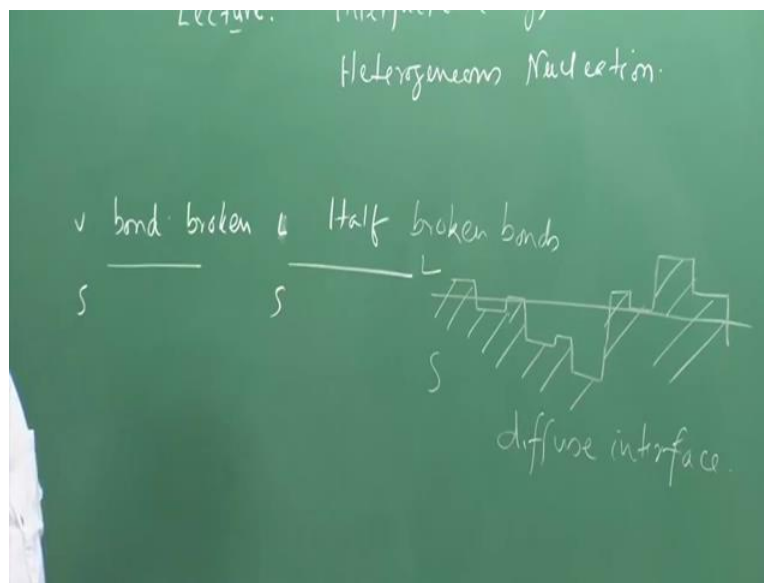 Lecture:
Heterogeneous Nucleation.
v bond broken L Half broken bonds
L
S S
S
diffuse interface.